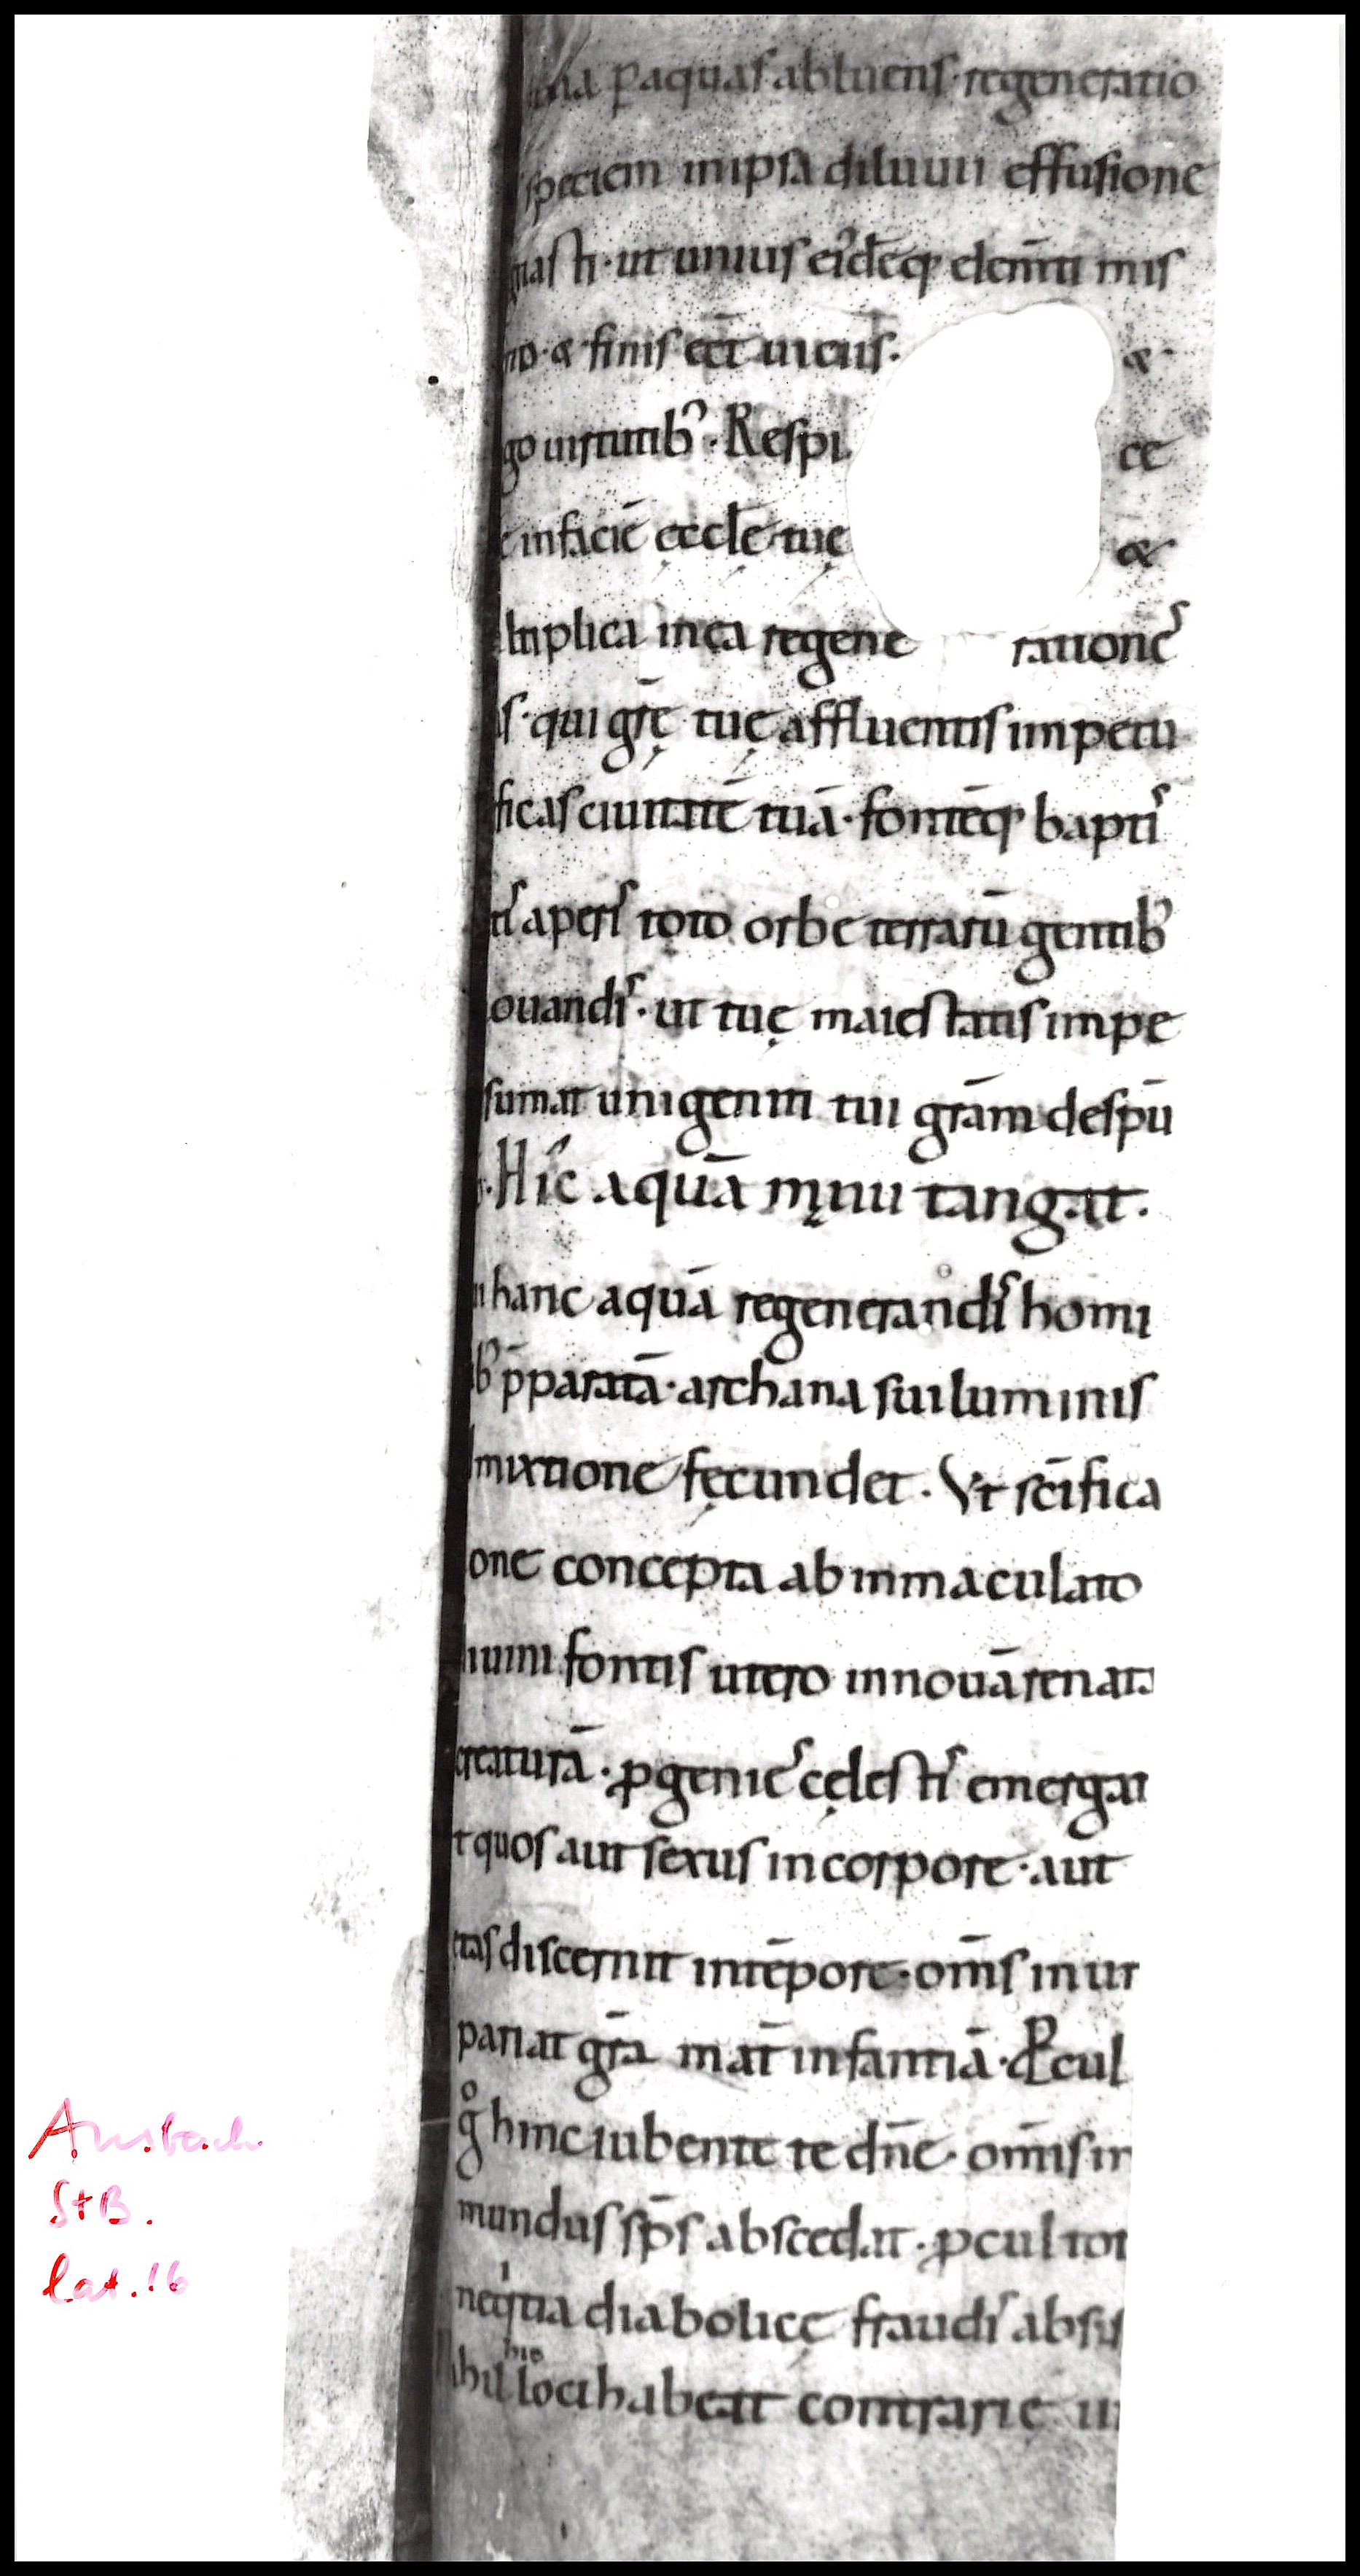 mina p aquas abluens· regeneratio
speciem in ipsa diluuii effusione
gnasti· ut unius eiꝰdēq; elem̄ti mis
rio· & finis eēt uiciis· &
go uirtutibꝰ· Respi ce
ē in faciē ęccłę tuę &
ltiplica in ea regene rationeˢ
s· qui gr̄ę tuę affluentis impetu
ficas ciuitatē tuā· fontēq; baptiˢ
tiˢ aperiˢ toto orbe terrarū gentibꝰ
ouandiˢ· ut tuę maiestatis impe
sumat unigeniti tui gr̄am de sp̄u
Hic aquā manu tangat.
n hanc aquā regenerandiˢ homi
bꝰ p̄paratā· archana sui luminis
mixtione fęcundet. Vt sc̄ifica
one concepta ab inmaculato
iuini fontis utero in nouā renata
creaturā· ꝓgenieˢ cęlestiˢ emergat
t quos aut sexus in corpore· aut
etas discernit in tēpore· om̄s in un
pariat gr̄a mat̄ infantiā· Ꝓcul
gͦ hinc iubente te dn̄e· omīs in
mundus sp̄s abscedat· ꝓcul tot
neq̍tia diabolicę fraudiˢ absis
Nihil hic loci habeat contrarię ui
Ansbach
StB.
lat. 16